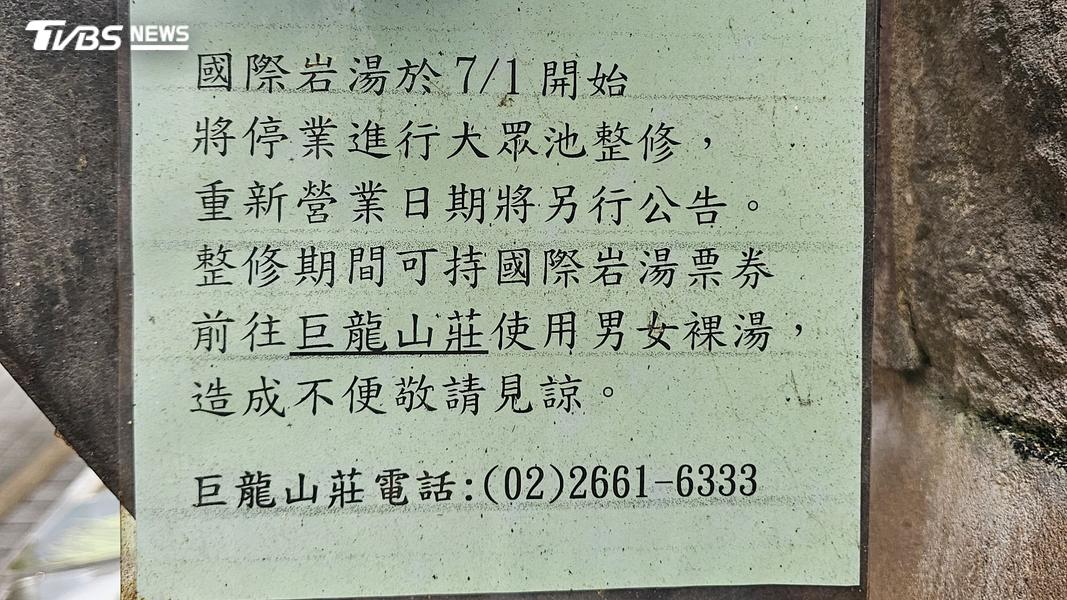 TVBS NEWS
國際岩湯於7/1開始
將停業進行大眾池整修，
重新營業日期將另行公告。
整修期間可持國際岩湯票券
前往巨龍山莊使用男女裸湯，
造成不便敬請見諒。
巨龍山莊電話:(02)2661-6333